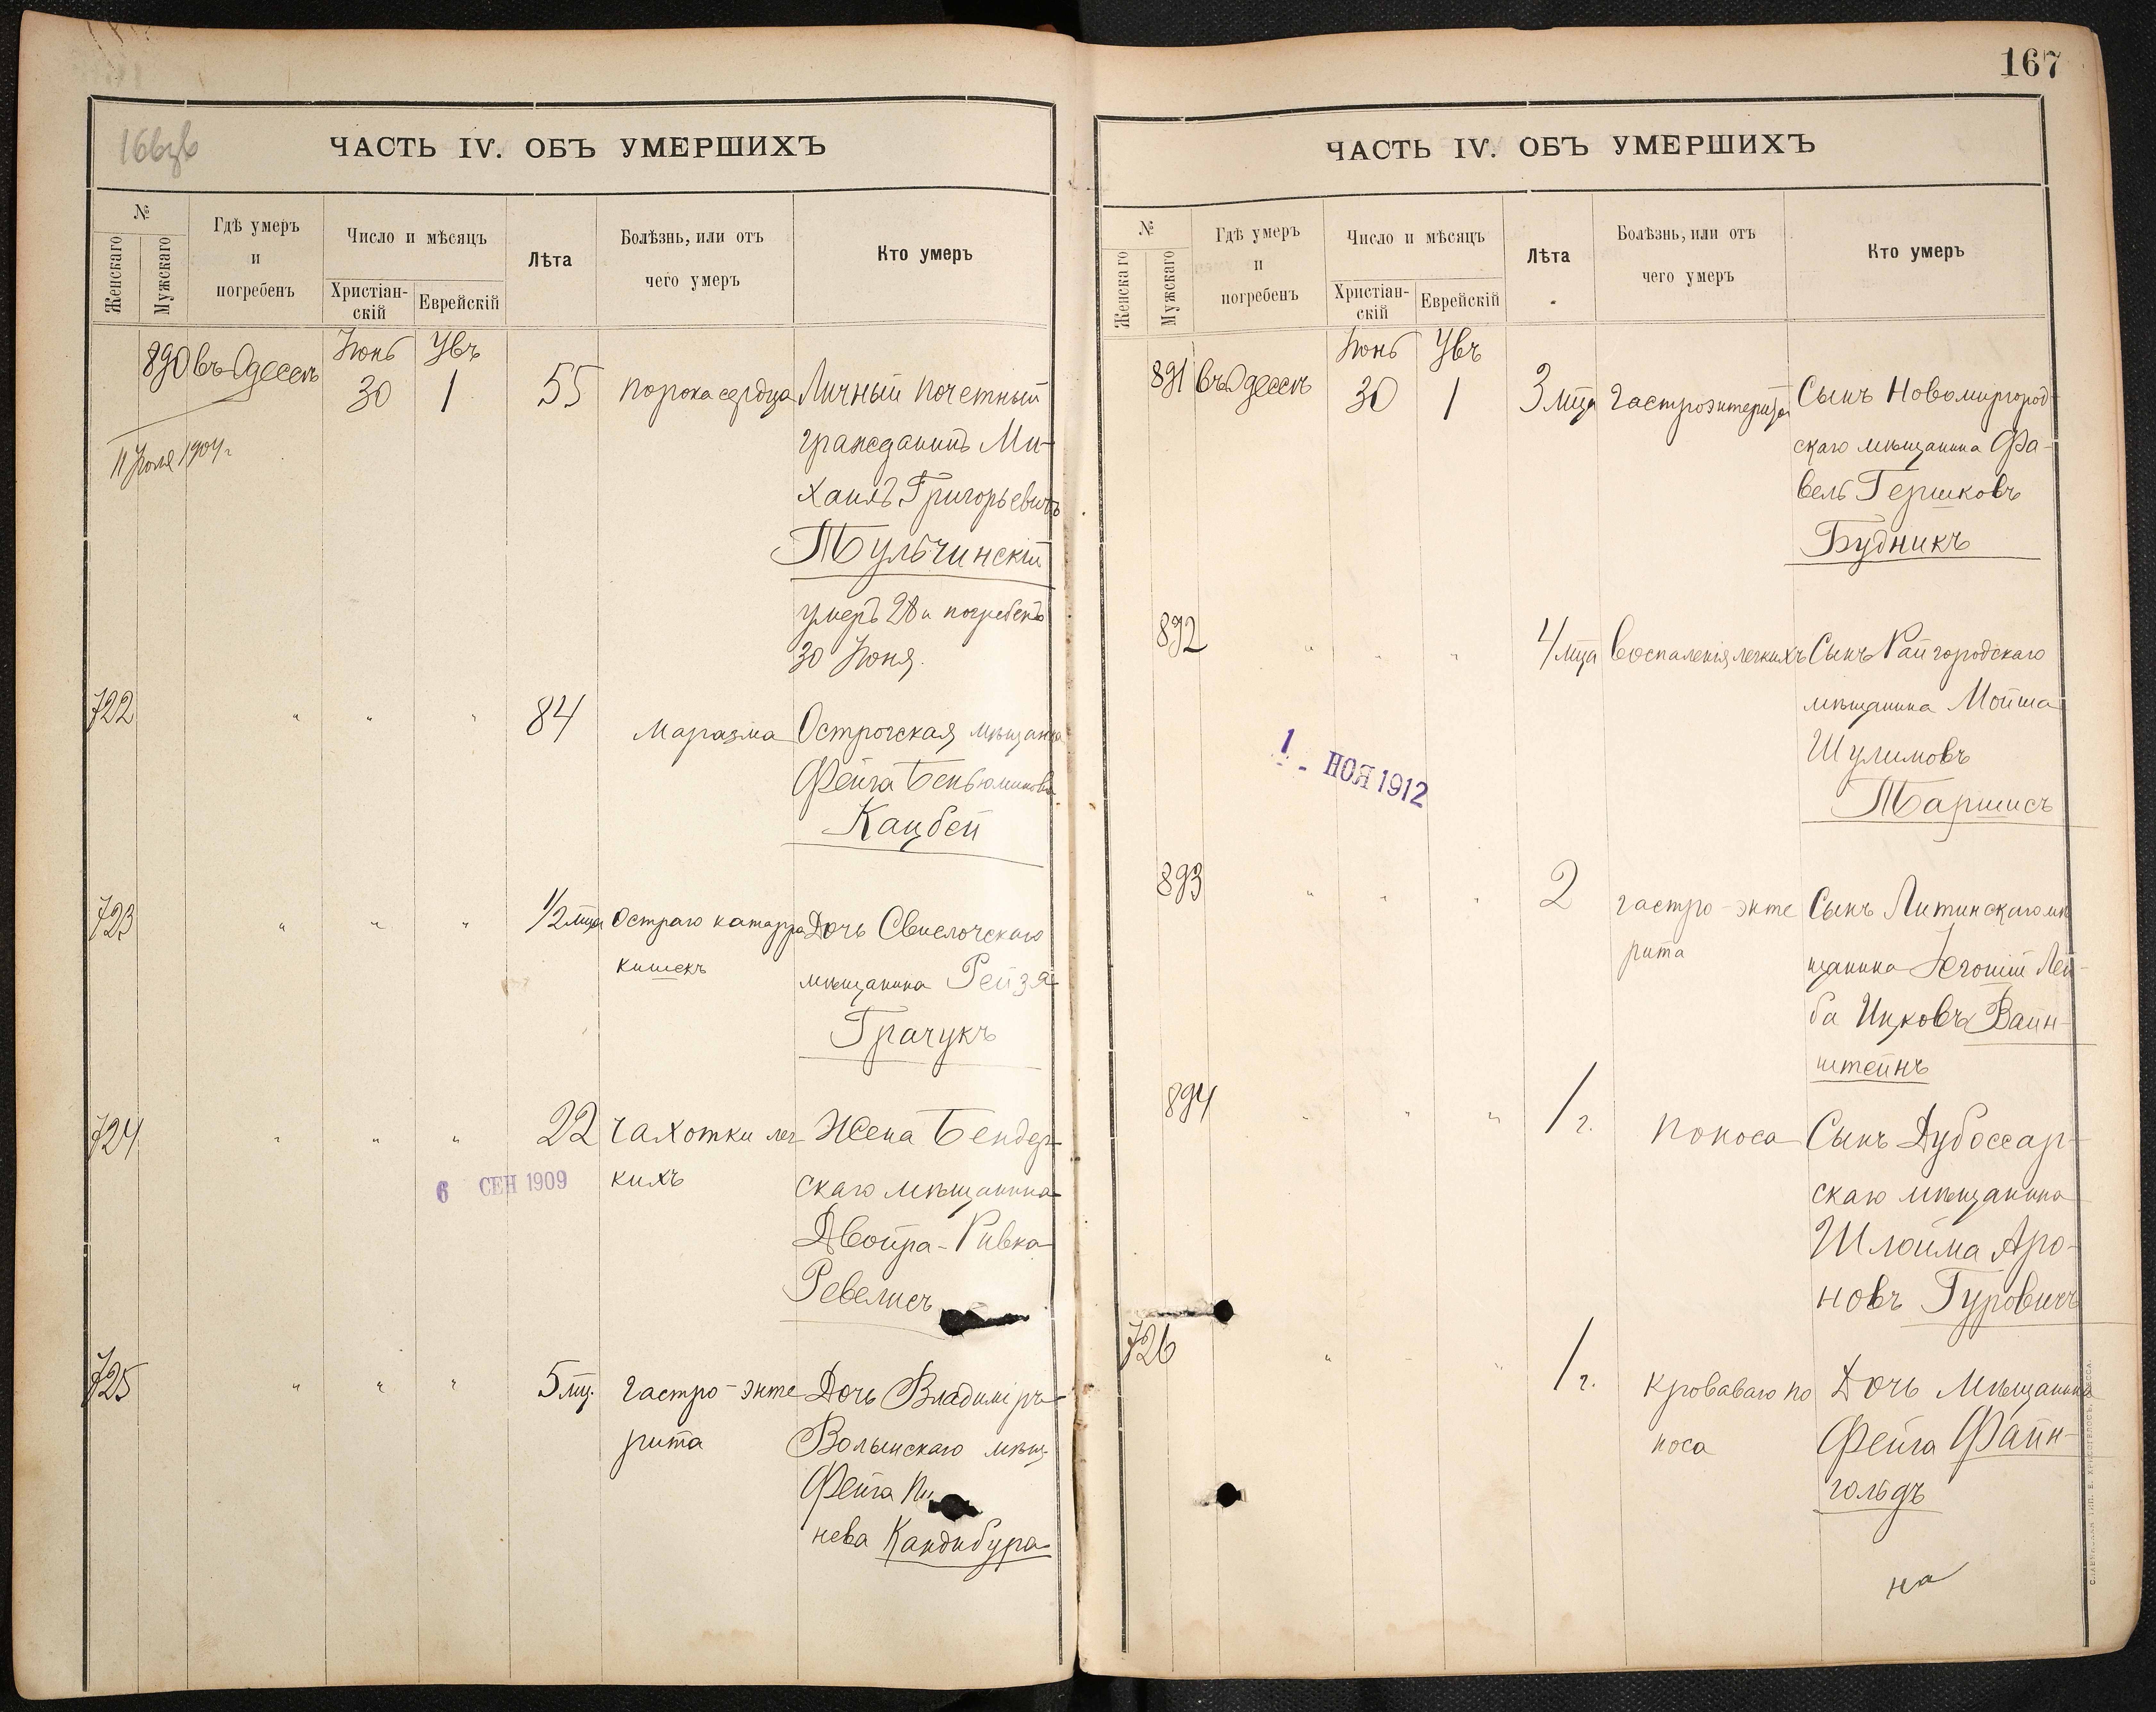 ЧАСТЬ IV. ОБЪ УМЕРШИХЪ
№
Женскаго
Мужскаго
Гдѣ умеръ
и
погребенъ
Число и мѣсяцъ
Христіан-
скій
Еврейскій
Лѣта
Болѣзнь, или отъ
чего умеръ
Кто умеръ
890 въ Одессѣ
Іюнь
30
1
55
порока сердца
Личный почетный
гражданинъ Ми-
хаилъ Григорьевичъ
Тульчинскій
умеръ 28 и погребенъ
30 Іюня.
11 Іюля 1904 г
722
" " "
84
Маразма
Острогская мѣщанка
Фейга Беньюминова
Кацбей
723
" " "
1/2 мца
Остраго катарра
кишекъ
Дочь Свислочскаго
мѣщанина Рейзя
Грачукъ
724
" " "
22
чахотки лег-
кихъ
Жена Бендер-
скаго мѣщанина
Двойра-Ривка
Ревелисъ
6 СЕН 1909
725
" " "
5 мц.
гастро-энте
рита
Дочь Владиміръ-
Волынскаго мѣщ.
Фейга
нева Кандибура
167
ЧАСТЬ IV. ОБЪ УМЕРШИХЪ
№
Женскаго
Мужскаго
Гдѣ умеръ
и
погребенъ
Число и мѣсяцъ
Христіан-
скій
Еврейскій
Лѣта
Болѣзнь, или отъ
чего умеръ
Кто умеръ
891 въ Одессѣ
Іюнь
30
1
3 мца
Гастроэнтерита
Сынъ Новомиргород-
скаго мѣщанина Фа-
вель Гершковъ
Будникъ
892
" " "
4 мца
воспаленія легкихъ
Сынъ Райгородскаго
мѣщанина Мойша
Шулимовъ
Таршисъ
1 - НОЯ 1912
893
" " "
2
гастро-энте
рита
Сынъ Литинскаго мѣ
щанина Лей-
ба Ицковъ Вайн-
штейнъ
894
" " "
1 г.
поноса
Сынъ Дубоссар-
скаго мѣщанина
Шлойма Аро-
новъ Гуровичъ
726
" " "
1 г.
Кроваваго по
носа
Дочь мѣщанина
Фейга Файн-
гольдъ
на